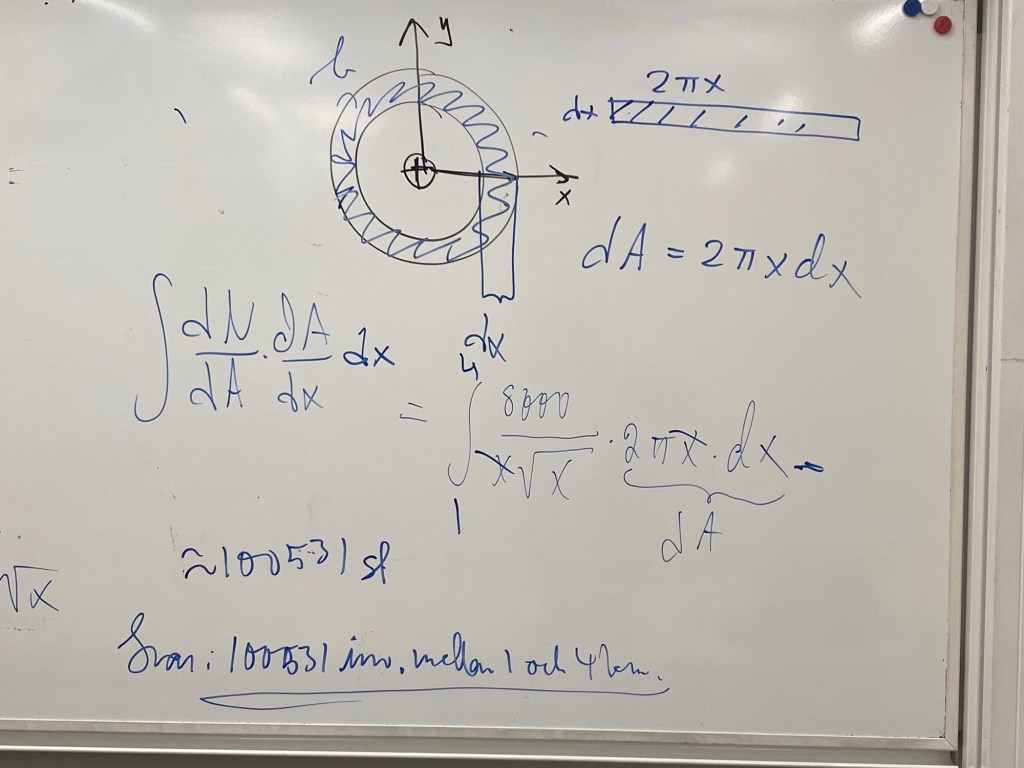 y
b
2πx
dx
x
dA = 2πx dx
dx
∫ dN/dA · dA/dx dx = ∫₁⁴ 8000/(x√x) · 2πx · dx =
dA
≈ 100531 st
√x
Svar: 100531 inv. mellan 1 och 4 km.